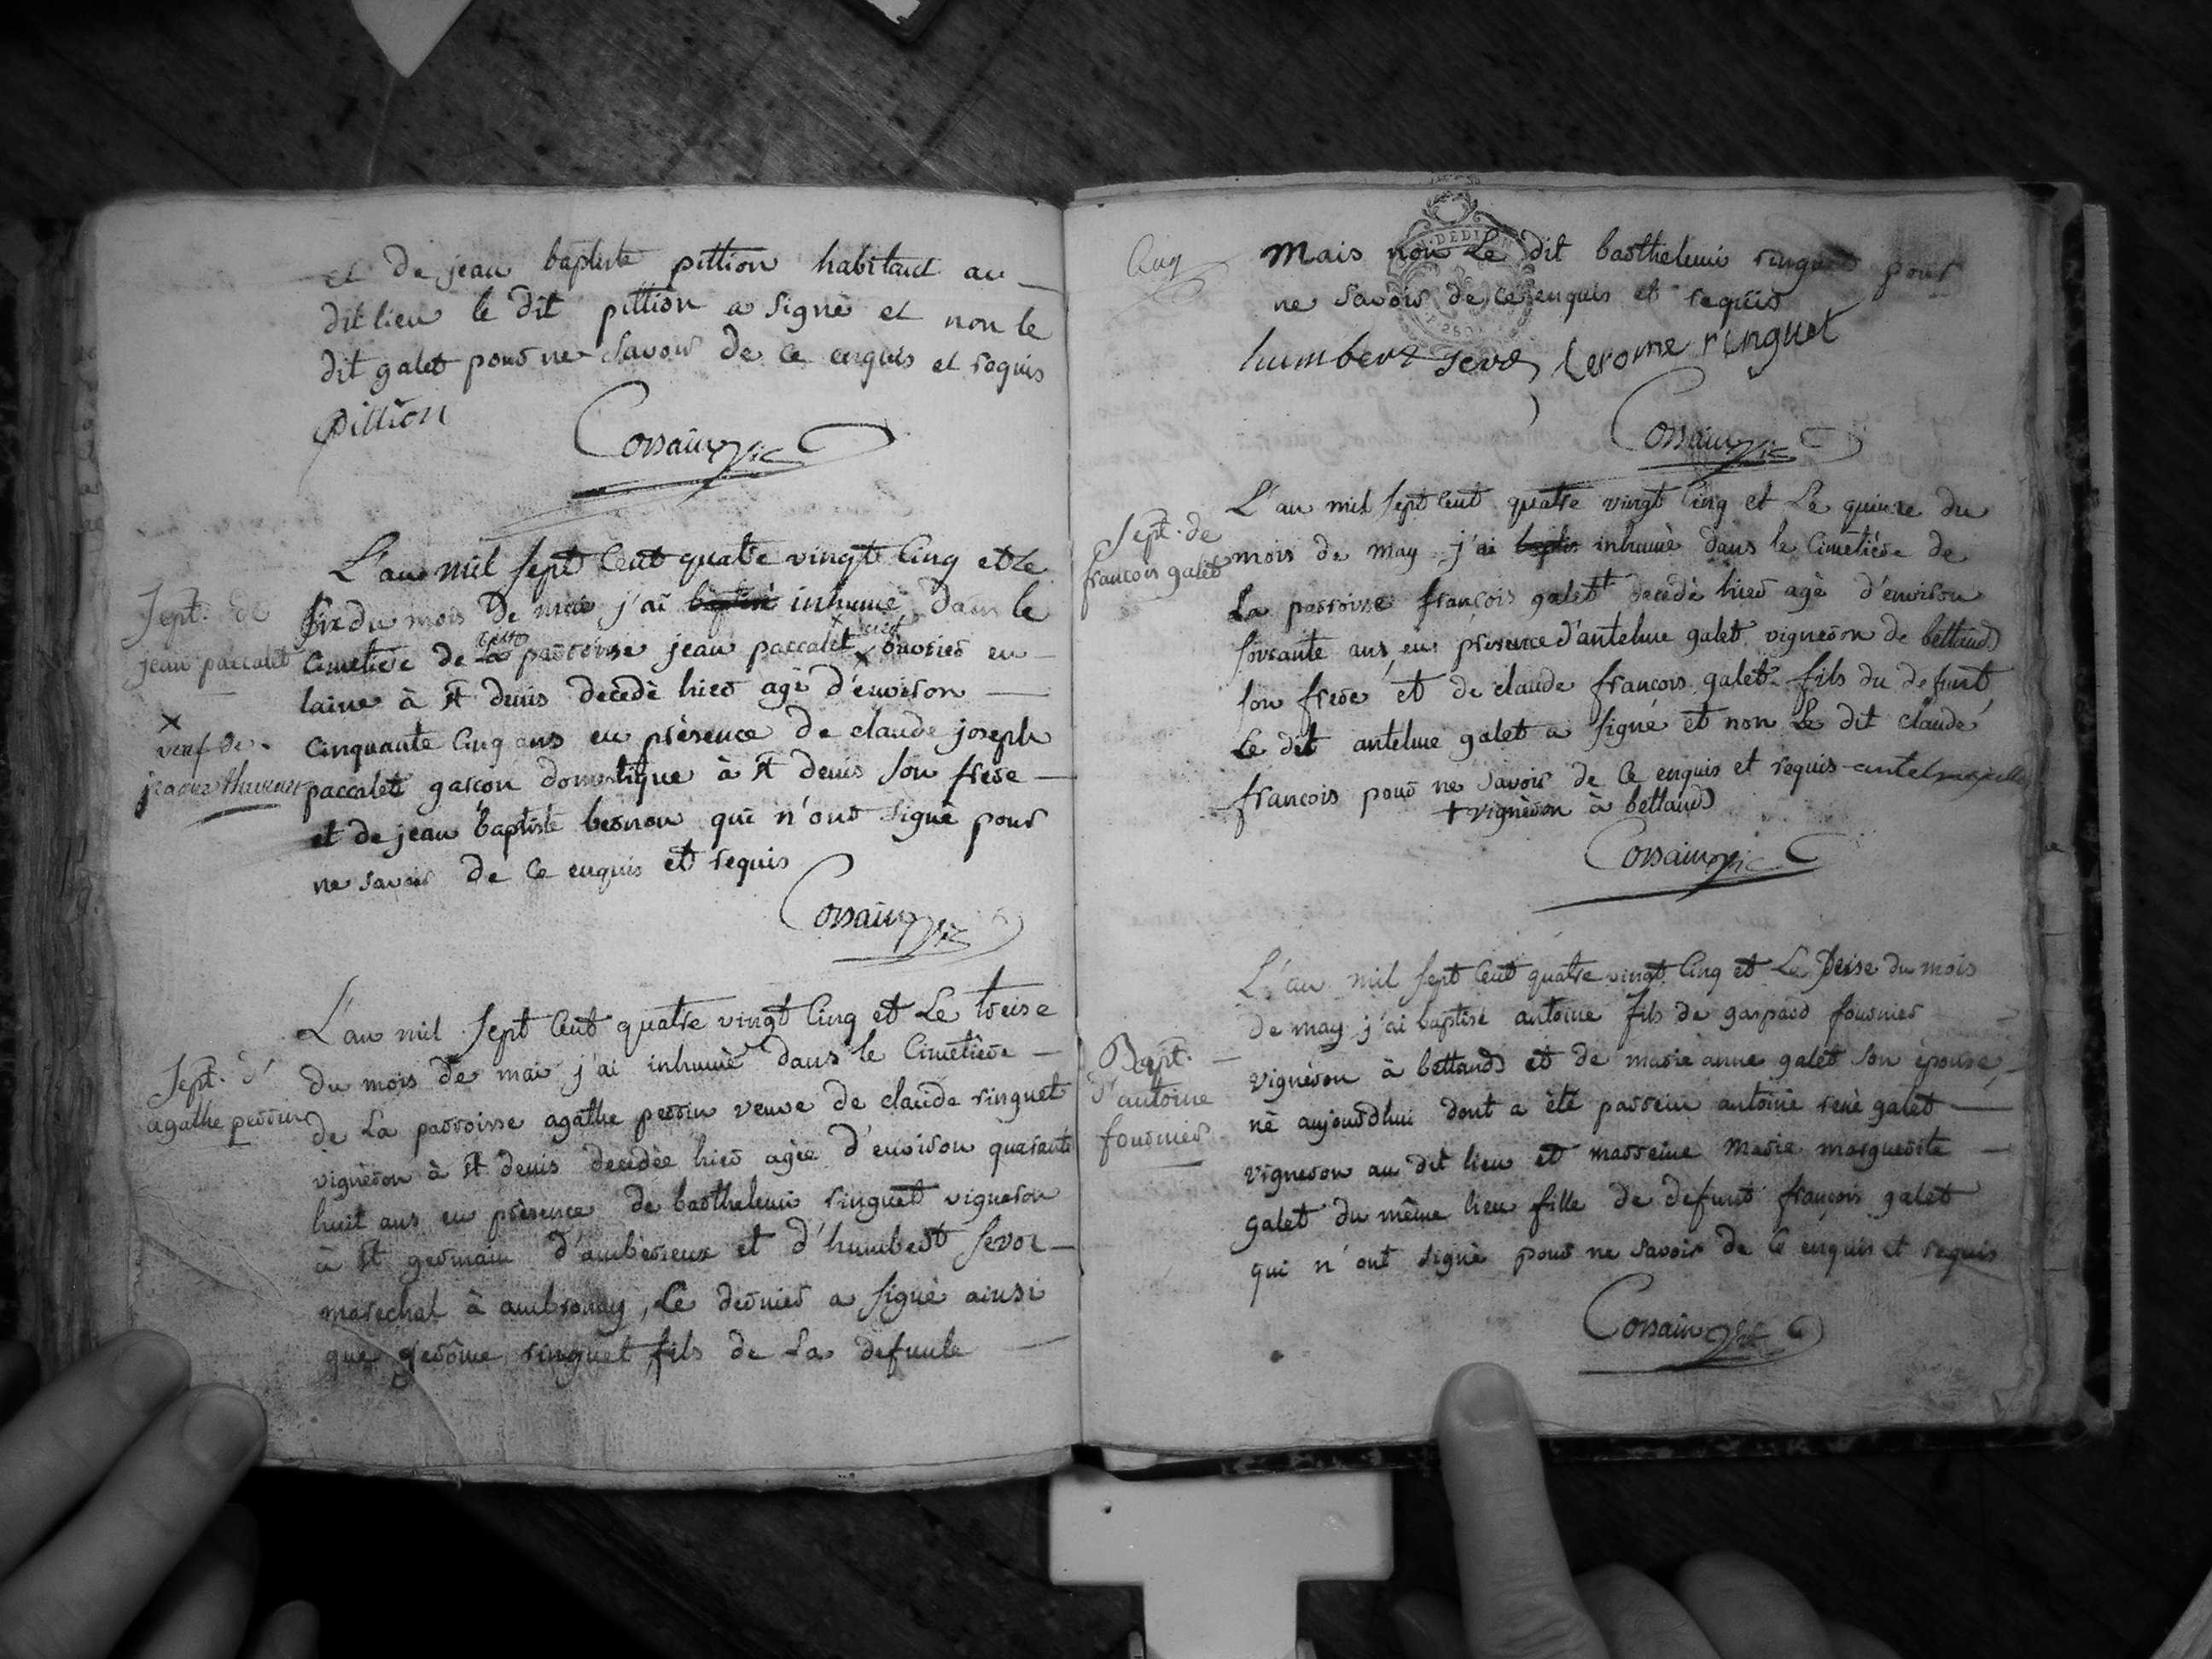 et de jean baptiste pittion habitant au
dit lieu le dit pittion a signé et non le
dit galet pour ne savoir de ce enquis et requis
pittion
Corsain vic
Sept. de
jean paccalet
L'an mil sept cent quatre vingt cinq et le
six du mois de mai j'ai inhumé dans le
cimetiere de parroisse jean paccalet ouvrier en
laine à st denis decedé hier agé d'environ
x
veuf de
cinquante cinq ans en présence de claude joseph
paccalet garcon domestique à st denis son frere
et de jean baptiste besnon qui n'ont signé pour
ne savoir de ce enquis et requis
Corsain vic
Sept. d'
agathe perrin
L'an mil sept cent quatre vingt cinq et Le treise
du mois de mai j'ai inhumé dans le cimetière
de La parroisse agathe perrin veuve de claude ringuet
vignèron à st denis decedée hier agée d'environ quarante
huit ans en présence de barthelemi ringuet vigneron
à st germain d'amberieux et d'humbert servoz
marechal à ambronay, Le dernier a signé ainsi
que jerôme ringuet fils de La defunte
Cinq
mais non Le dit barthelemi ringuet pour
ne savoir de ce enquis et requis
humbert jerome ringuet
Corsain vic
Sept. de
francois galet
L'an mil sept cent quatre vingt cinq et Le quinze du
mois de may j'ai inhumé dans le cimetière de
La parroisse françois galet + decedé hier agé d'environ
soixante ans en présence d'antelme galet vigneron de bettand
son frere et de claude françois galet fils du defunt
Le dit antelme galet a signé et non Le dit claude
francois pour ne savoir de ce enquis et requis
+ vignèron à bettand
Corsain vic
Bapt.
d'antoine
fournier
L'an mil sept cent quatre vingt cinq et Le seise du mois
de may j'ai baptisé antoine fils de gaspard fournier
vignèron à bettand et de marie anne galet son épouse
né aujourdhui dont a été parrein antoine renè galet
vigneron au dit lieu et marreine marie marguerite
galet du même lieu fille de defunt françois galet
qui n'ont signé pour ne savoir de ce enquis et requis
Corsain vic